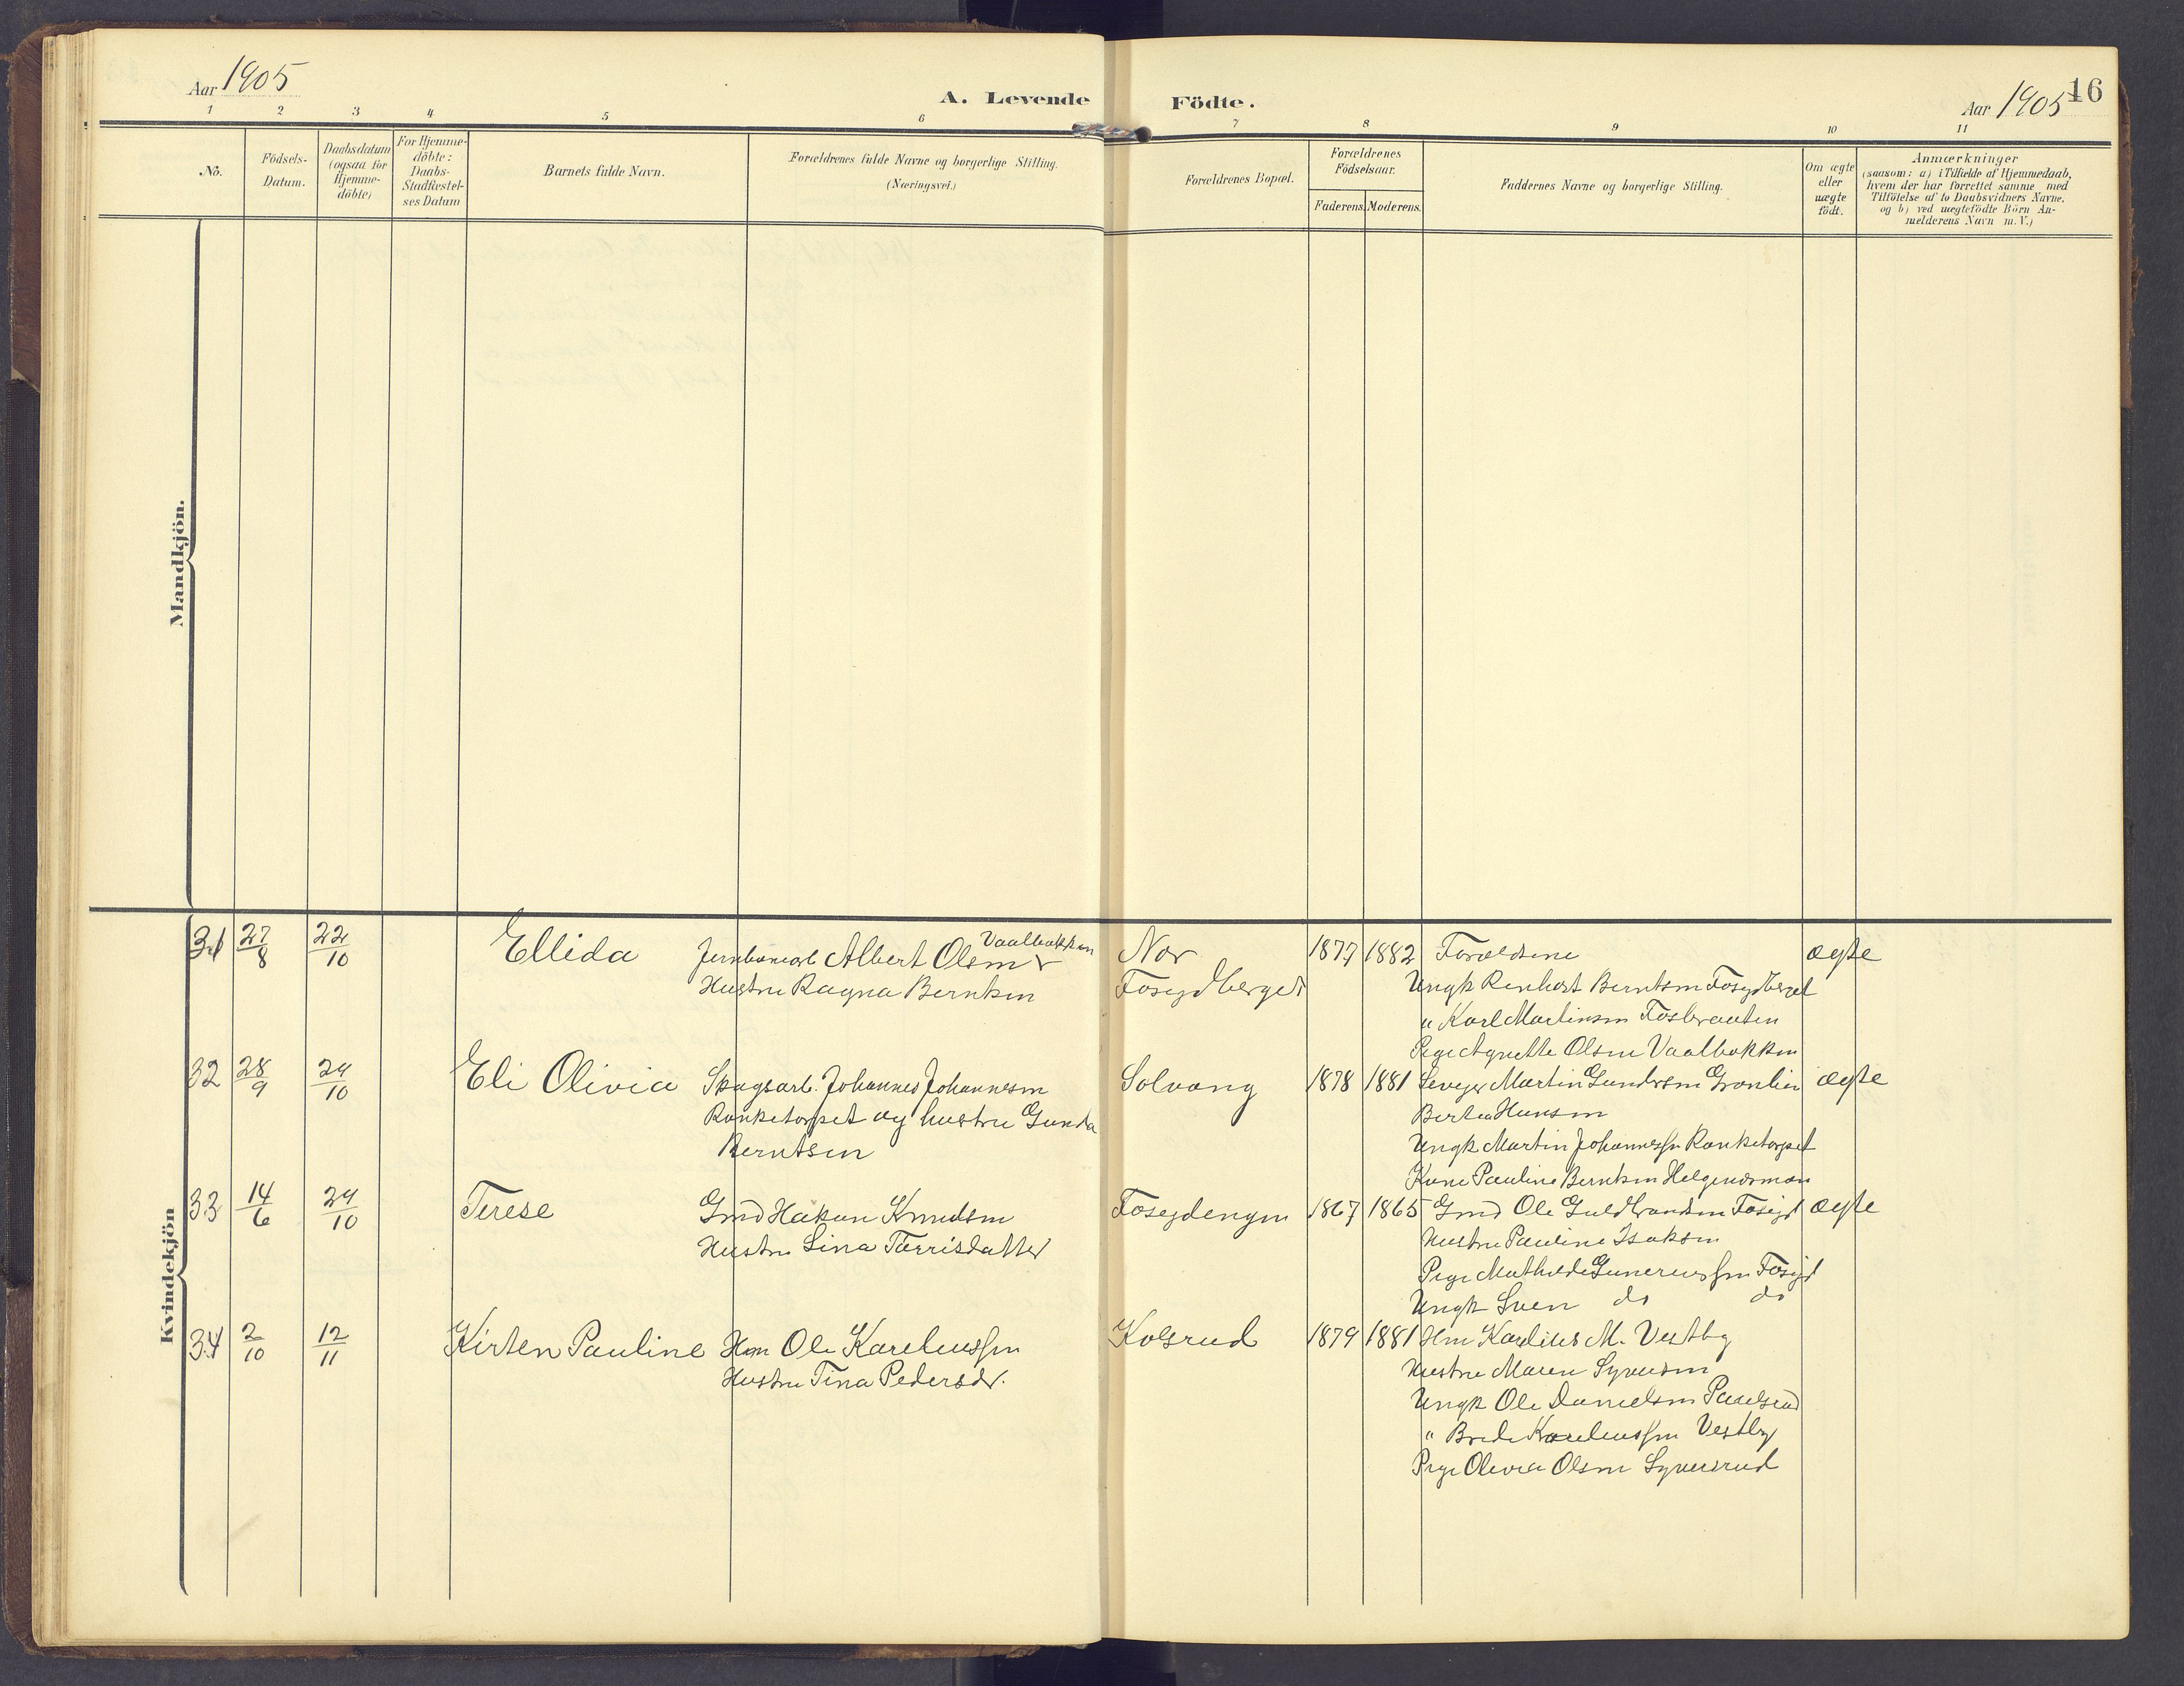 Aar 1905
A. Levende Födte.
Aar 1905
16
1 2 3 4 5 6 7 8 9 10 11
No.
Födsels-
Datum.
Daabsdatum
(ogsaa for
Hjemme-
döbte)
For Hjemme-
döbte:
Daabs-
Stadfæstel-
ses Datum
Barnets fulde Navn.
Forældrenes fulde Navne og borgerlige Stilling.
(Næringsvei.)
Forældrenes Bopæl.
Forældrenes
Födselsaar.
Faderens. Moderens.
Faddernes Navne og borgerlige Stilling.
Om ægte
eller
uægte
födt.
Anmærkninger
(saasom: a) i Tilfælde af Hjemmedaab,
hvem der har forrettet samme med
Tilföielse af to Daabsvidners Navne,
og b) ved uægtefödte Börn An-
melderens Navn m. V.)
Mandkjön.
Kvindekjön
31 27/8 22/10 Ellida
Jernbanearb Albert Olsen Vaalbakken
Hustru Ragna Berntsen
Nor
Foseydberget
1877 1882
Forældrene
Ungk Renhart Berntsen Foseydberget
" Karl Martinsen Fosbraaten
Pige Agnethe Olsen Vaalbakken
ægte
32 28/9 29/10 Eli Olivia
Skogsarb. Johannes Johannesen
Ranketorpet og hustru Gunda
Berntsen
Solvang
1878 1881
Martin Gundersen Grønlien
Berthea Hansen
Ungk Martin Johannessen Ranketorpet
Kone Pauline Berntsen Helgenesmoen
ægte
33 14/6 29/10 Terese
Gmd Hakon Knudsen
Hustru Lina Tørrisdatter
Foseydengen
1867 1865
Gmd Ole Guldbrandsen Foseyd
Hustru Pauline Isaksen
Pige Mathilde Guneriussen Foseyd
Ungk Sven do do
ægte
34 2/10 12/11 Kirsten Pauline
Hm Ole Kareliussen
Hustru Tina Pedersdr.
Kolsrud
1879 1881
Hm Karelius M. Vestby
Hustru Maren Syversen
Ungk Ole Danielsen Paulsrud
" Brede Kareliussen Vestby
Pige Olivia Olsen Syversrud